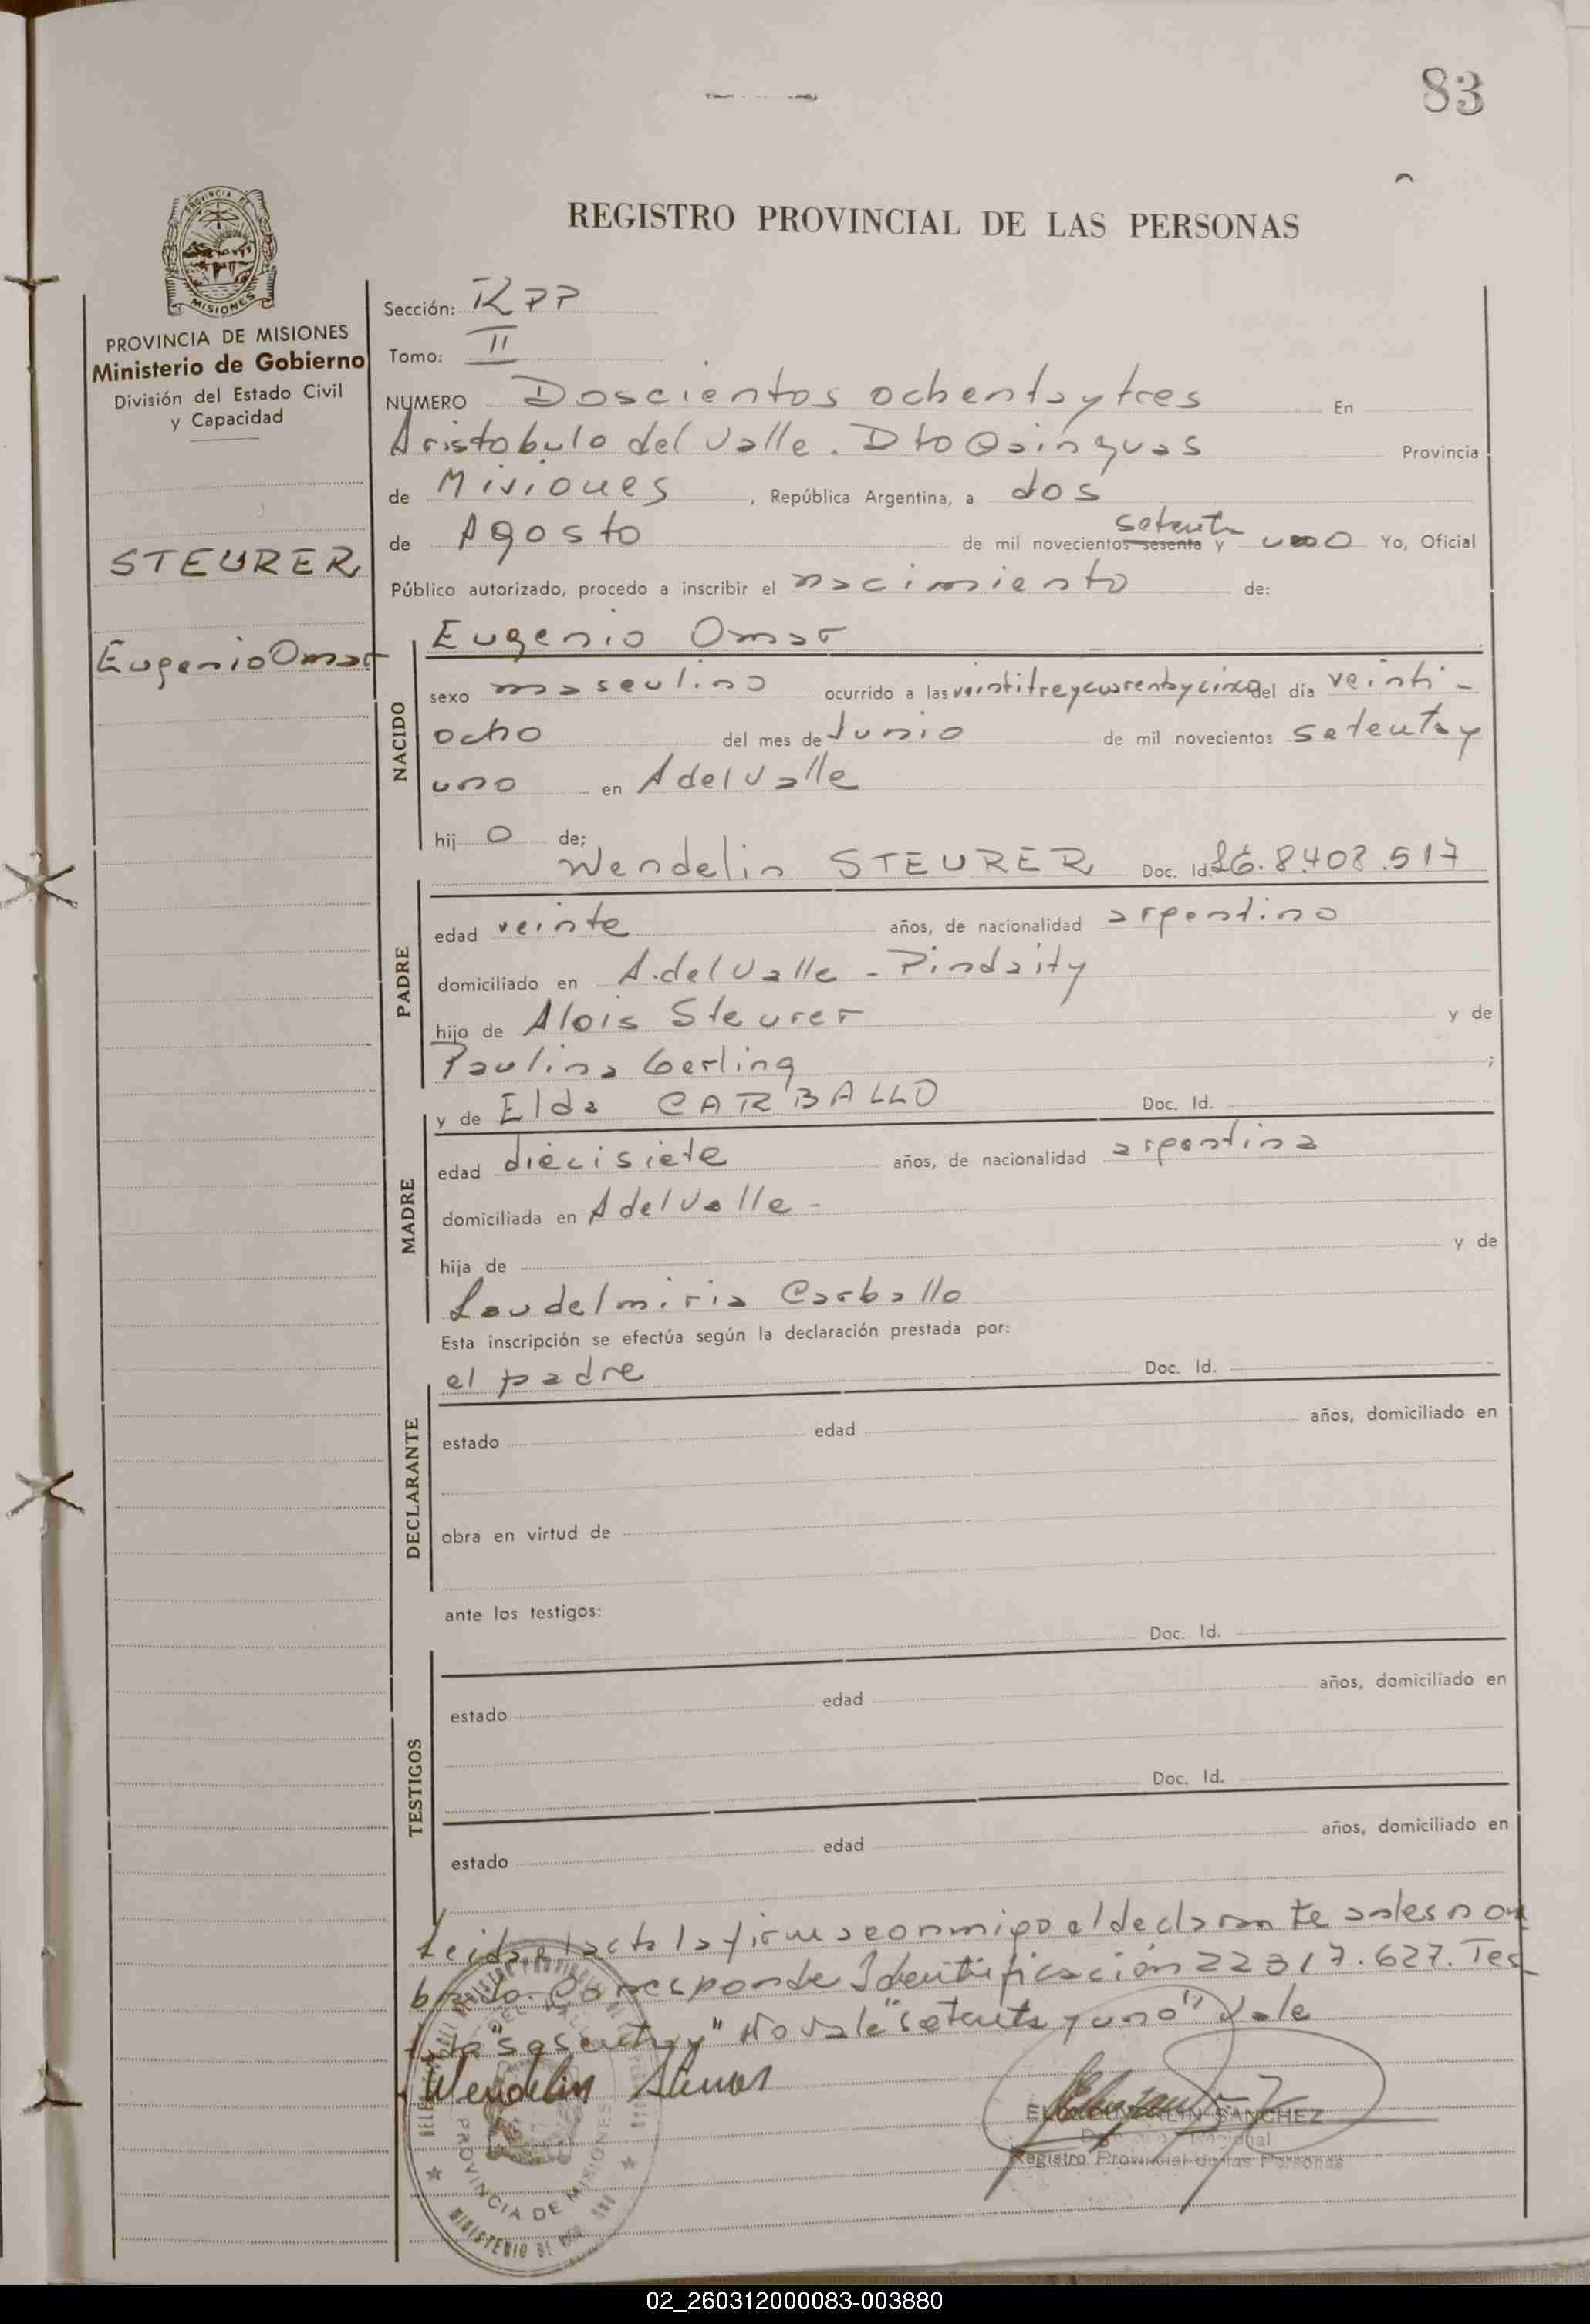 83
REGISTRO PROVINCIAL DE LAS PERSONAS
PROVINCIA DE
MISIONES
PROVINCIA DE MISIONES
Ministerio de Gobierno
División del Estado Civil
y Capacidad
STEURER
Eugenio Omar
Sección: RPP
Tomo: II
NUMERO Doscientos ochenta y tres En
Aristobulo del Valle. Dto Cainguas Provincia
de Misiones, República Argentina, a dos
de Agosto de mil novecientos sesenta setenta y uno Yo, Oficial
Público autorizado, procedo a inscribir el nacimiento de:
Eugenio Omar
NACIDO
sexo masculino ocurrido a las veintitre y cuarenta y cinco del día veinti-
ocho del mes de Junio de mil novecientos setenta y
uno en A del Valle
hijo de;
Wendelin STEURER Doc. Id. 8.408.517
PADRE
edad veinte años, de nacionalidad argentino
domiciliado en A. del Valle - Pindaity
hijo de Alois Steurer y de
Paulina Gerling ;
y de Elda CARBALLO Doc. Id.
MADRE
edad diecisiete años, de nacionalidad argentina
domiciliada en A del Valle -
hija de y de
Laudelmiria Carballo
Esta inscripción se efectúa según la declaración prestada por:
el padre Doc. Id.
DECLARANTE
estado edad años, domiciliado en
obra en virtud de
ante los testigos:
Doc. Id.
TESTIGOS
estado edad años, domiciliado en
Doc. Id.
estado edad años, domiciliado en
Leida el acta la firma conmigo el declarante antes nom
brado. Corresponde Identificación 22317.627. Tes
"sesenta y" No vale "setenta y uno" Vale
Wendelin Steurer
SANCHEZ
Registro Provincial de las Personas
PROVINCIA DE MISIONES
MINISTERIO DE
02_260312000083-003880